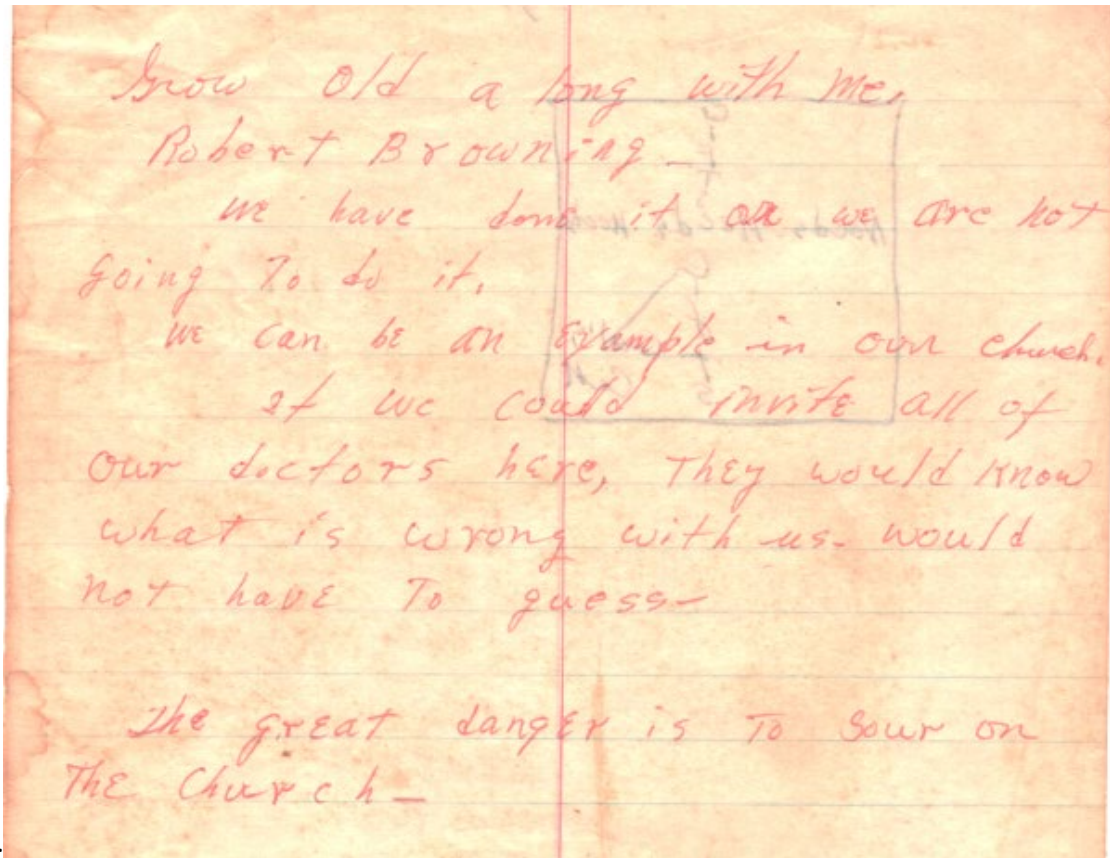 Grow old a long with me,
Robert Browning -
we have done it or we are not
going To do it.
we can be an Example in our church.
If we could invite all of
our doctors here, They would know
what is wrong with us - would
not have To guess -
The great danger is To Sour on
The Church -